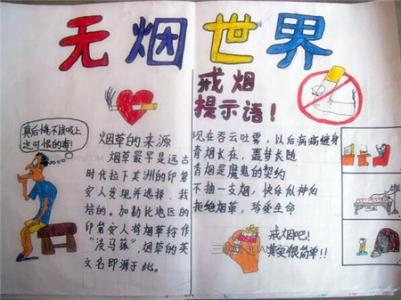 无烟世界
戒烟
提示语！
真后悔不该吸上
这可恨的毒！
烟草的来源
烟草最早是远古
时代拉丁美洲的印第
安人发现并选择、栽
培的。加勒比地区的
印第安人将烟草称作
"淡马菰"，烟草的英
文名即源于此。
现在吞云吐雾，以后病痛缠身
香烟长在，噩梦长随
香烟是魔鬼的契约
不抽一支烟，快乐似神仙
拒绝烟草，珍爱生命
戒烟吧！
其实很简单！！